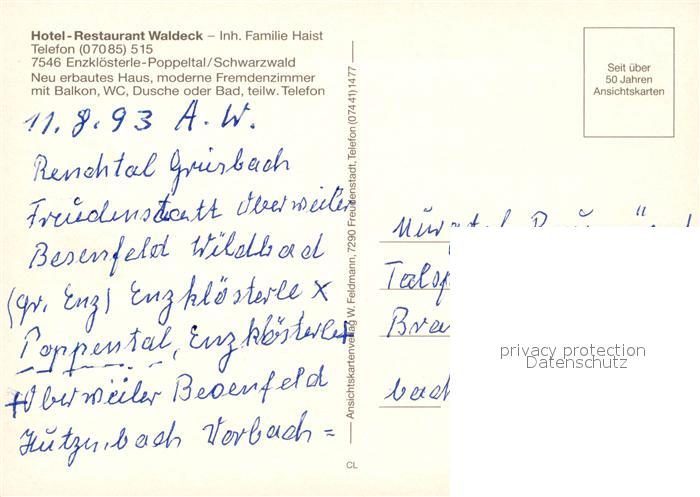 Hotel-Restaurant Waldeck – Inh. Familie Haist
Telefon (07085) 515
7546 Enzklösterle-Poppeltal/Schwarzwald
Neu erbautes Haus, moderne Fremdenzimmer
mit Balkon, WC, Dusche oder Bad, teilw. Telefon
11.8.93 A.W.
Renchtal Griesbach
Freudenstatt Oberweiler
Besenfeld Wildbad
(gr. Enz) Enzklösterle x
Poppental, Enzklösterle+
+Oberweiler Besenfeld
Hutzenbach Vorbach =
Ansichtskartenverlag W. Feldmann, 7290 Freudenstadt, Telefon (07441) 1477
CL
Seit über
50 Jahren
Ansichtskarten
Talsp
Bra
bach
privacy protection
Datenschutz